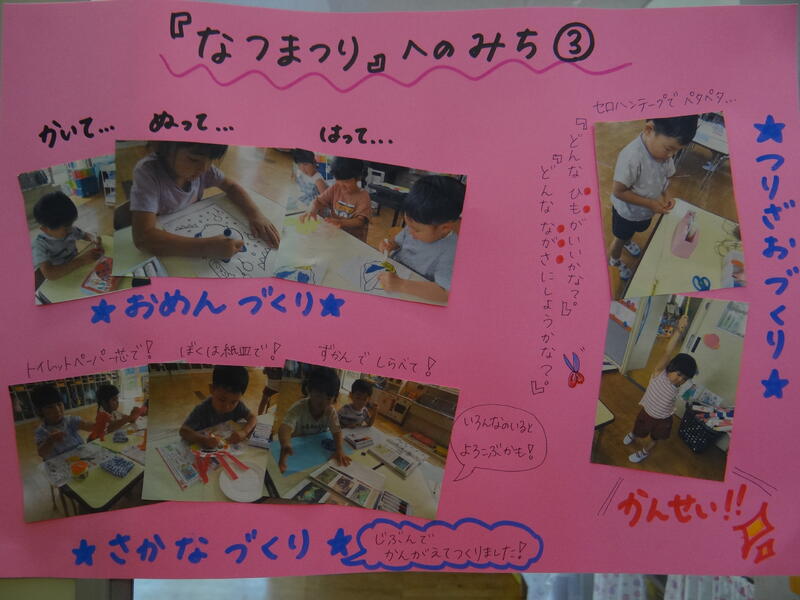 『なつまつり』へのみち③
かいて…
ぬって…
はって…
★おめんづくり★
トイレットペーパー芯で!
ぼくは紙皿で!
ずかんでしらべて!
いろんなのいると
よろこぶかも!
★さかなづくり★
じぶんで
かんがえてつくりました!
セロハンテープでペタペタ…
『どんなひもがいいかな?』
『どんなながさにしようかな?』
★つりざおづくり★
かんせい!!